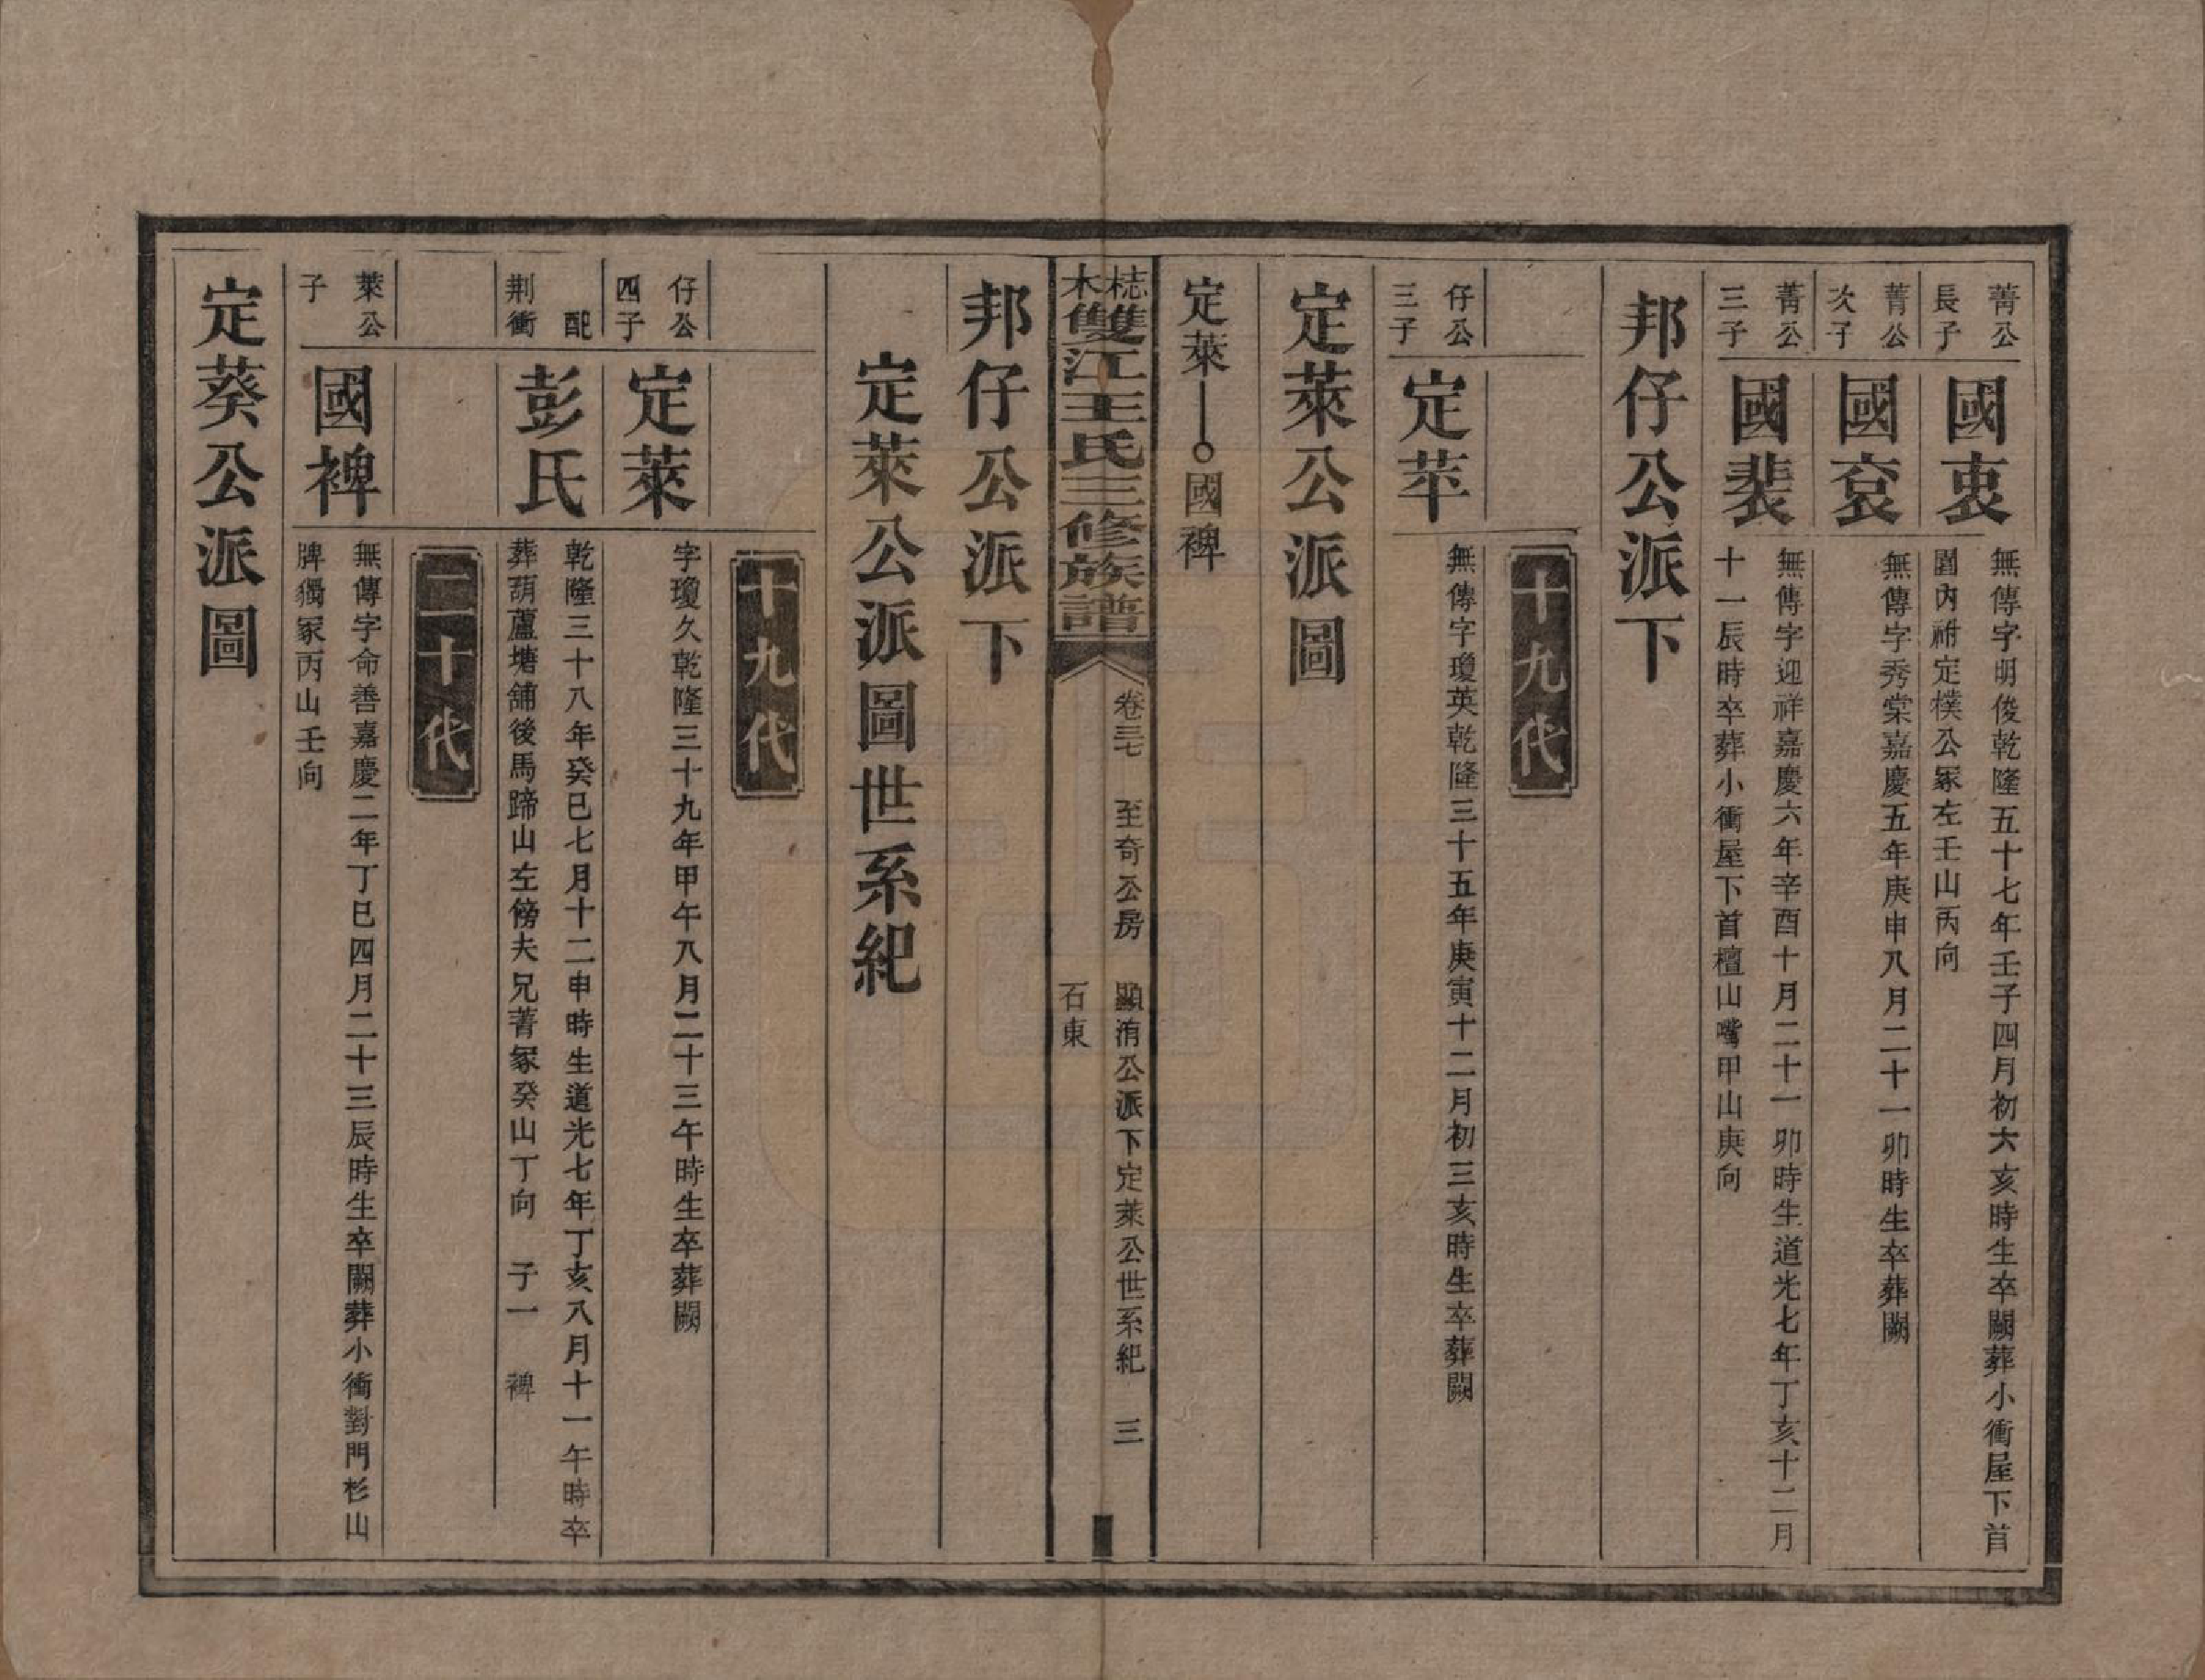 菁公長子
國衷
無傳字明俊乾隆五十七年壬子四月初六亥時生卒闕葬小衝屋下首
圍內祔定樸公冢左壬山丙向
菁公次子
國袞
無傳字秀棠嘉慶五年庚申八月二十一卯時生卒葬闕
菁公三子
國裴
無傳字迎祥嘉慶六年辛酉十月二十一卯時生道光七年丁亥十二月
十一辰時卒葬小衝屋下首檀山嘴甲山庚向
邦仔公派下
十九代
仔公三子
定苹
無傳字瓊英乾隆三十五年庚寅十二月初三亥時生卒葬闕
定萊公派圖
定萊
國裨
梽木雙江王氏三修族譜
卷三七
至奇公房
顯洧公派下定萊公世系紀
三
石東
邦仔公派下
定萊公派圖世系紀
十九代
仔公四子
定萊
字瓊久乾隆三十九年甲午八月二十三午時生卒葬闕
配荆衝
彭氏
乾隆三十八年癸巳七月十二申時生道光七年丁亥八月十一午時卒
葬葫蘆塘舖後馬蹄山左傍夫兄菁冢癸山丁向 子一 裨
二十代
萊公子
國裨
無傳字命善嘉慶二年丁巳四月二十三辰時生卒闕葬小衝對門杉山
牌獨冢丙山壬向
定葵公派圖